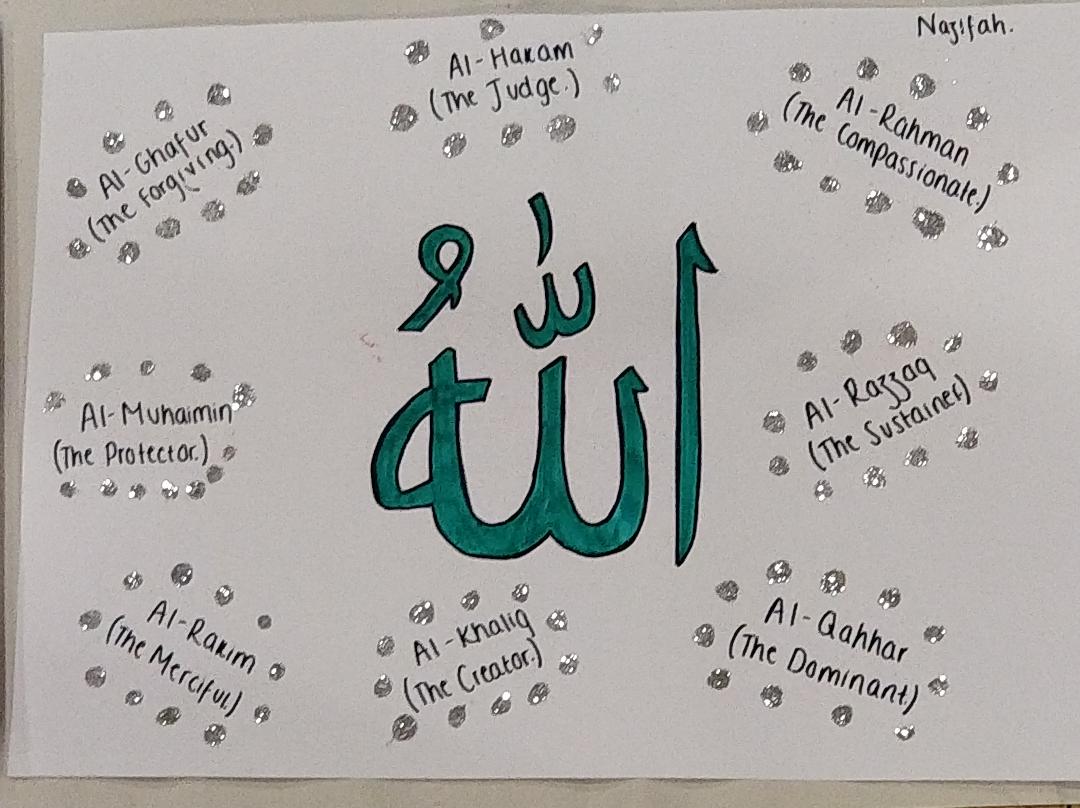 Nazifah.
Al-Hakam
(The Judge.)
Al-Rahman
(The Compassionate.)
Al-Ghafur
(The Forgiving.)
اللهُ
Al-Razzaq
(The Sustainer)
Al-Muhaimin
(The Protector.)
Al-Rakim
(The Merciful.)
Al-Khaliq
(The Creator.)
Al-Qahhar
(The Dominant.)